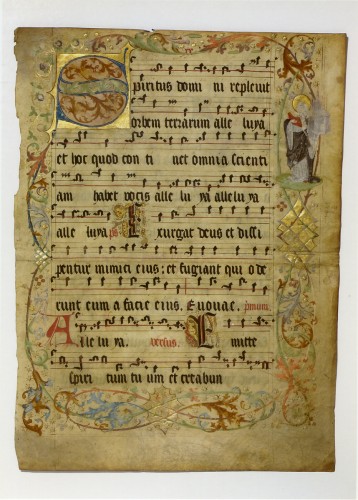 Spiritus domi ni repleuit
orbem terrarum alle luya
et hoc quod con ti net omnia scienti
am habet vocis alle lu ya allelu ya
alle luya ps Exurgat deus et dissi
pentur inimici eius: et fugiant qui ode
runt eum a facie eius. Euouae. pmum
Alle lu ya. versus. Emitte
spiri tum tu um et creabun